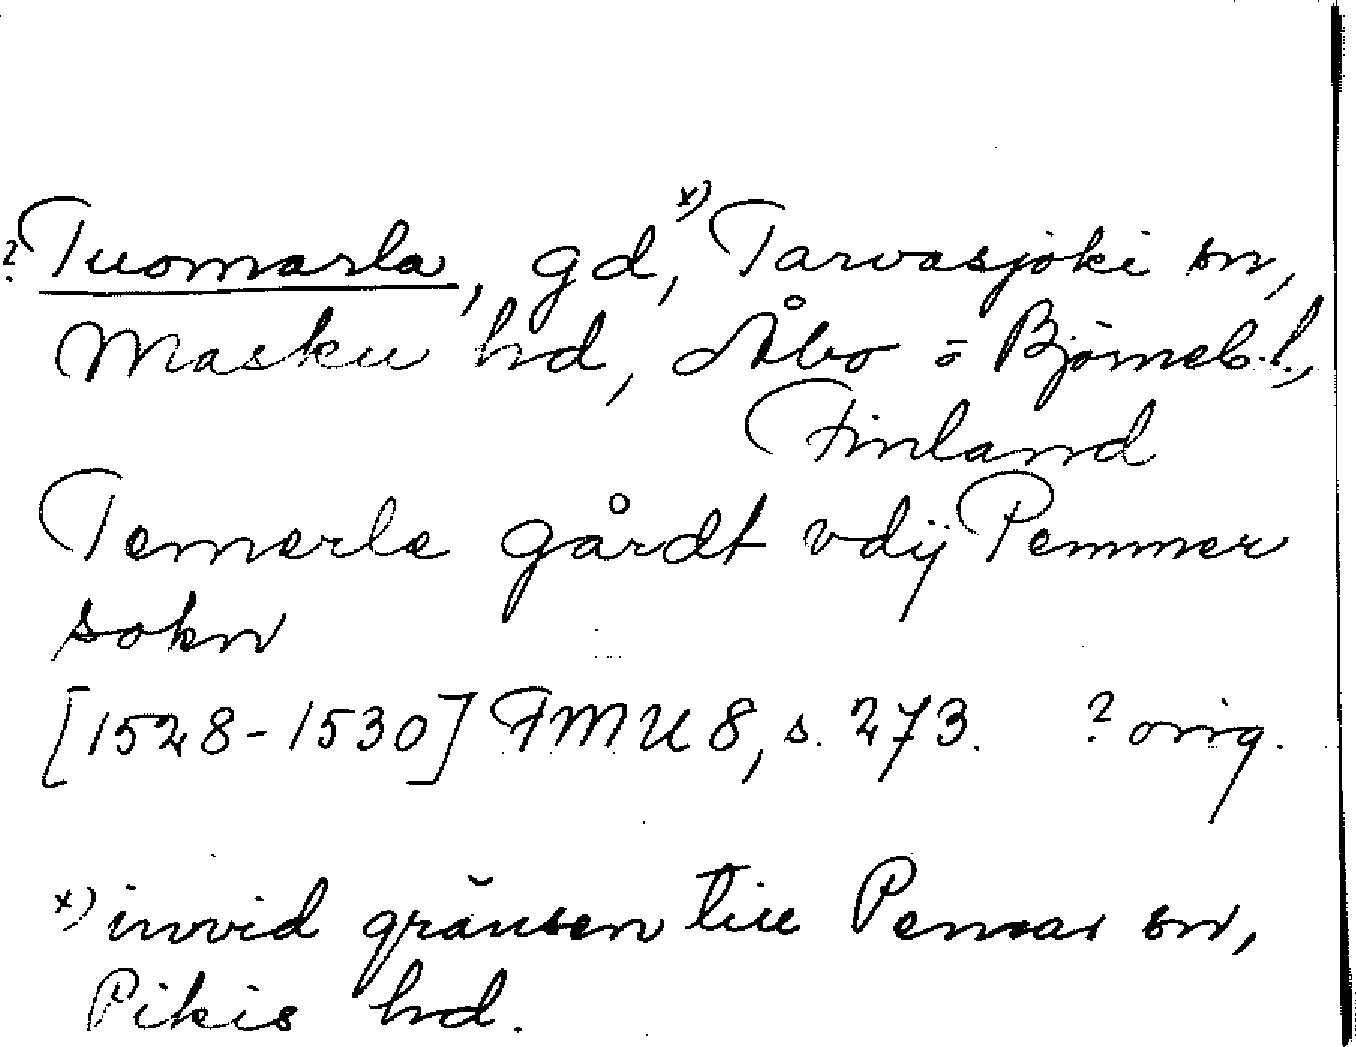 ? Tuomarla, gd, x) Tarvasjoki sn,
Masku hd, Åbo o Björneb. l.,
Finland
Temerle gårdt vdij Pemmer
sokn
[1528-1530] FMU 8, s. 273. ? orig.
x) invid gränsen till Pemar sn,
Pikis hd.